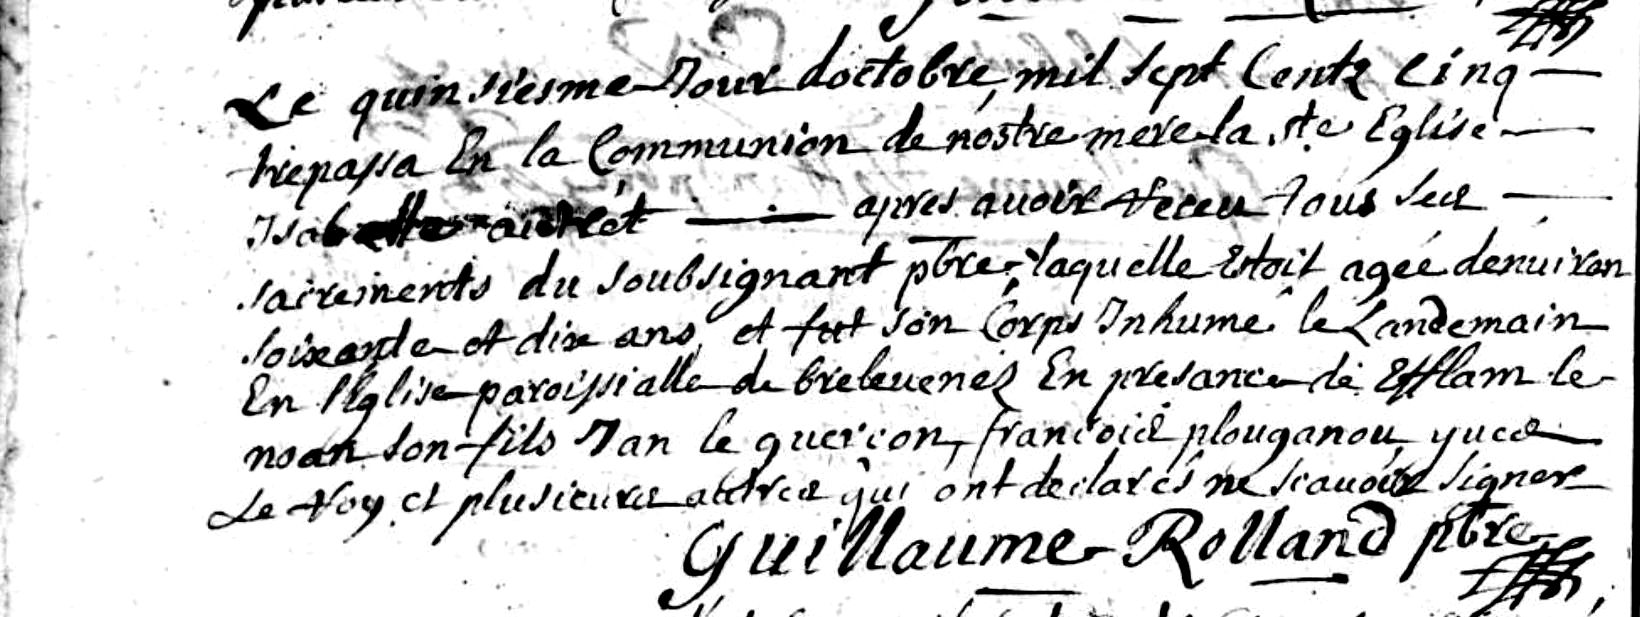 Le quinsiesme Jour doctobre mil sept Centz cinq
trepassa En la Communion de nostre mere la ste Eglise
Isabelle auffret apres auoir receu tous ses
sacrements du soubsignant pbre, laquelle Estoit agee denuiron
soixante et dix ans, et fut son Corps Inhumé le Landemain
En lEglise paroissialle de breleuenez En presance de Efflam le
noan son fils Jan le guercon, francois plouganou yues
Le roy et plusieurs autres qui ont declarés ne scauoir signer
Guillaume Rolland pbre